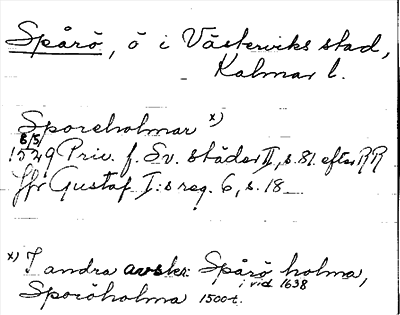 Spårö, ö i Västerviks stad,
Kalmar l.
Sporeholmar x)
6/5
1529 Priv. f. Sv. städer II, s. 81. efter RR
Jfr Gustaf I:s reg. 6, s. 18
x) I andra avskr. Spårö holma,
i vid 1638
Sporöholma 1500t.